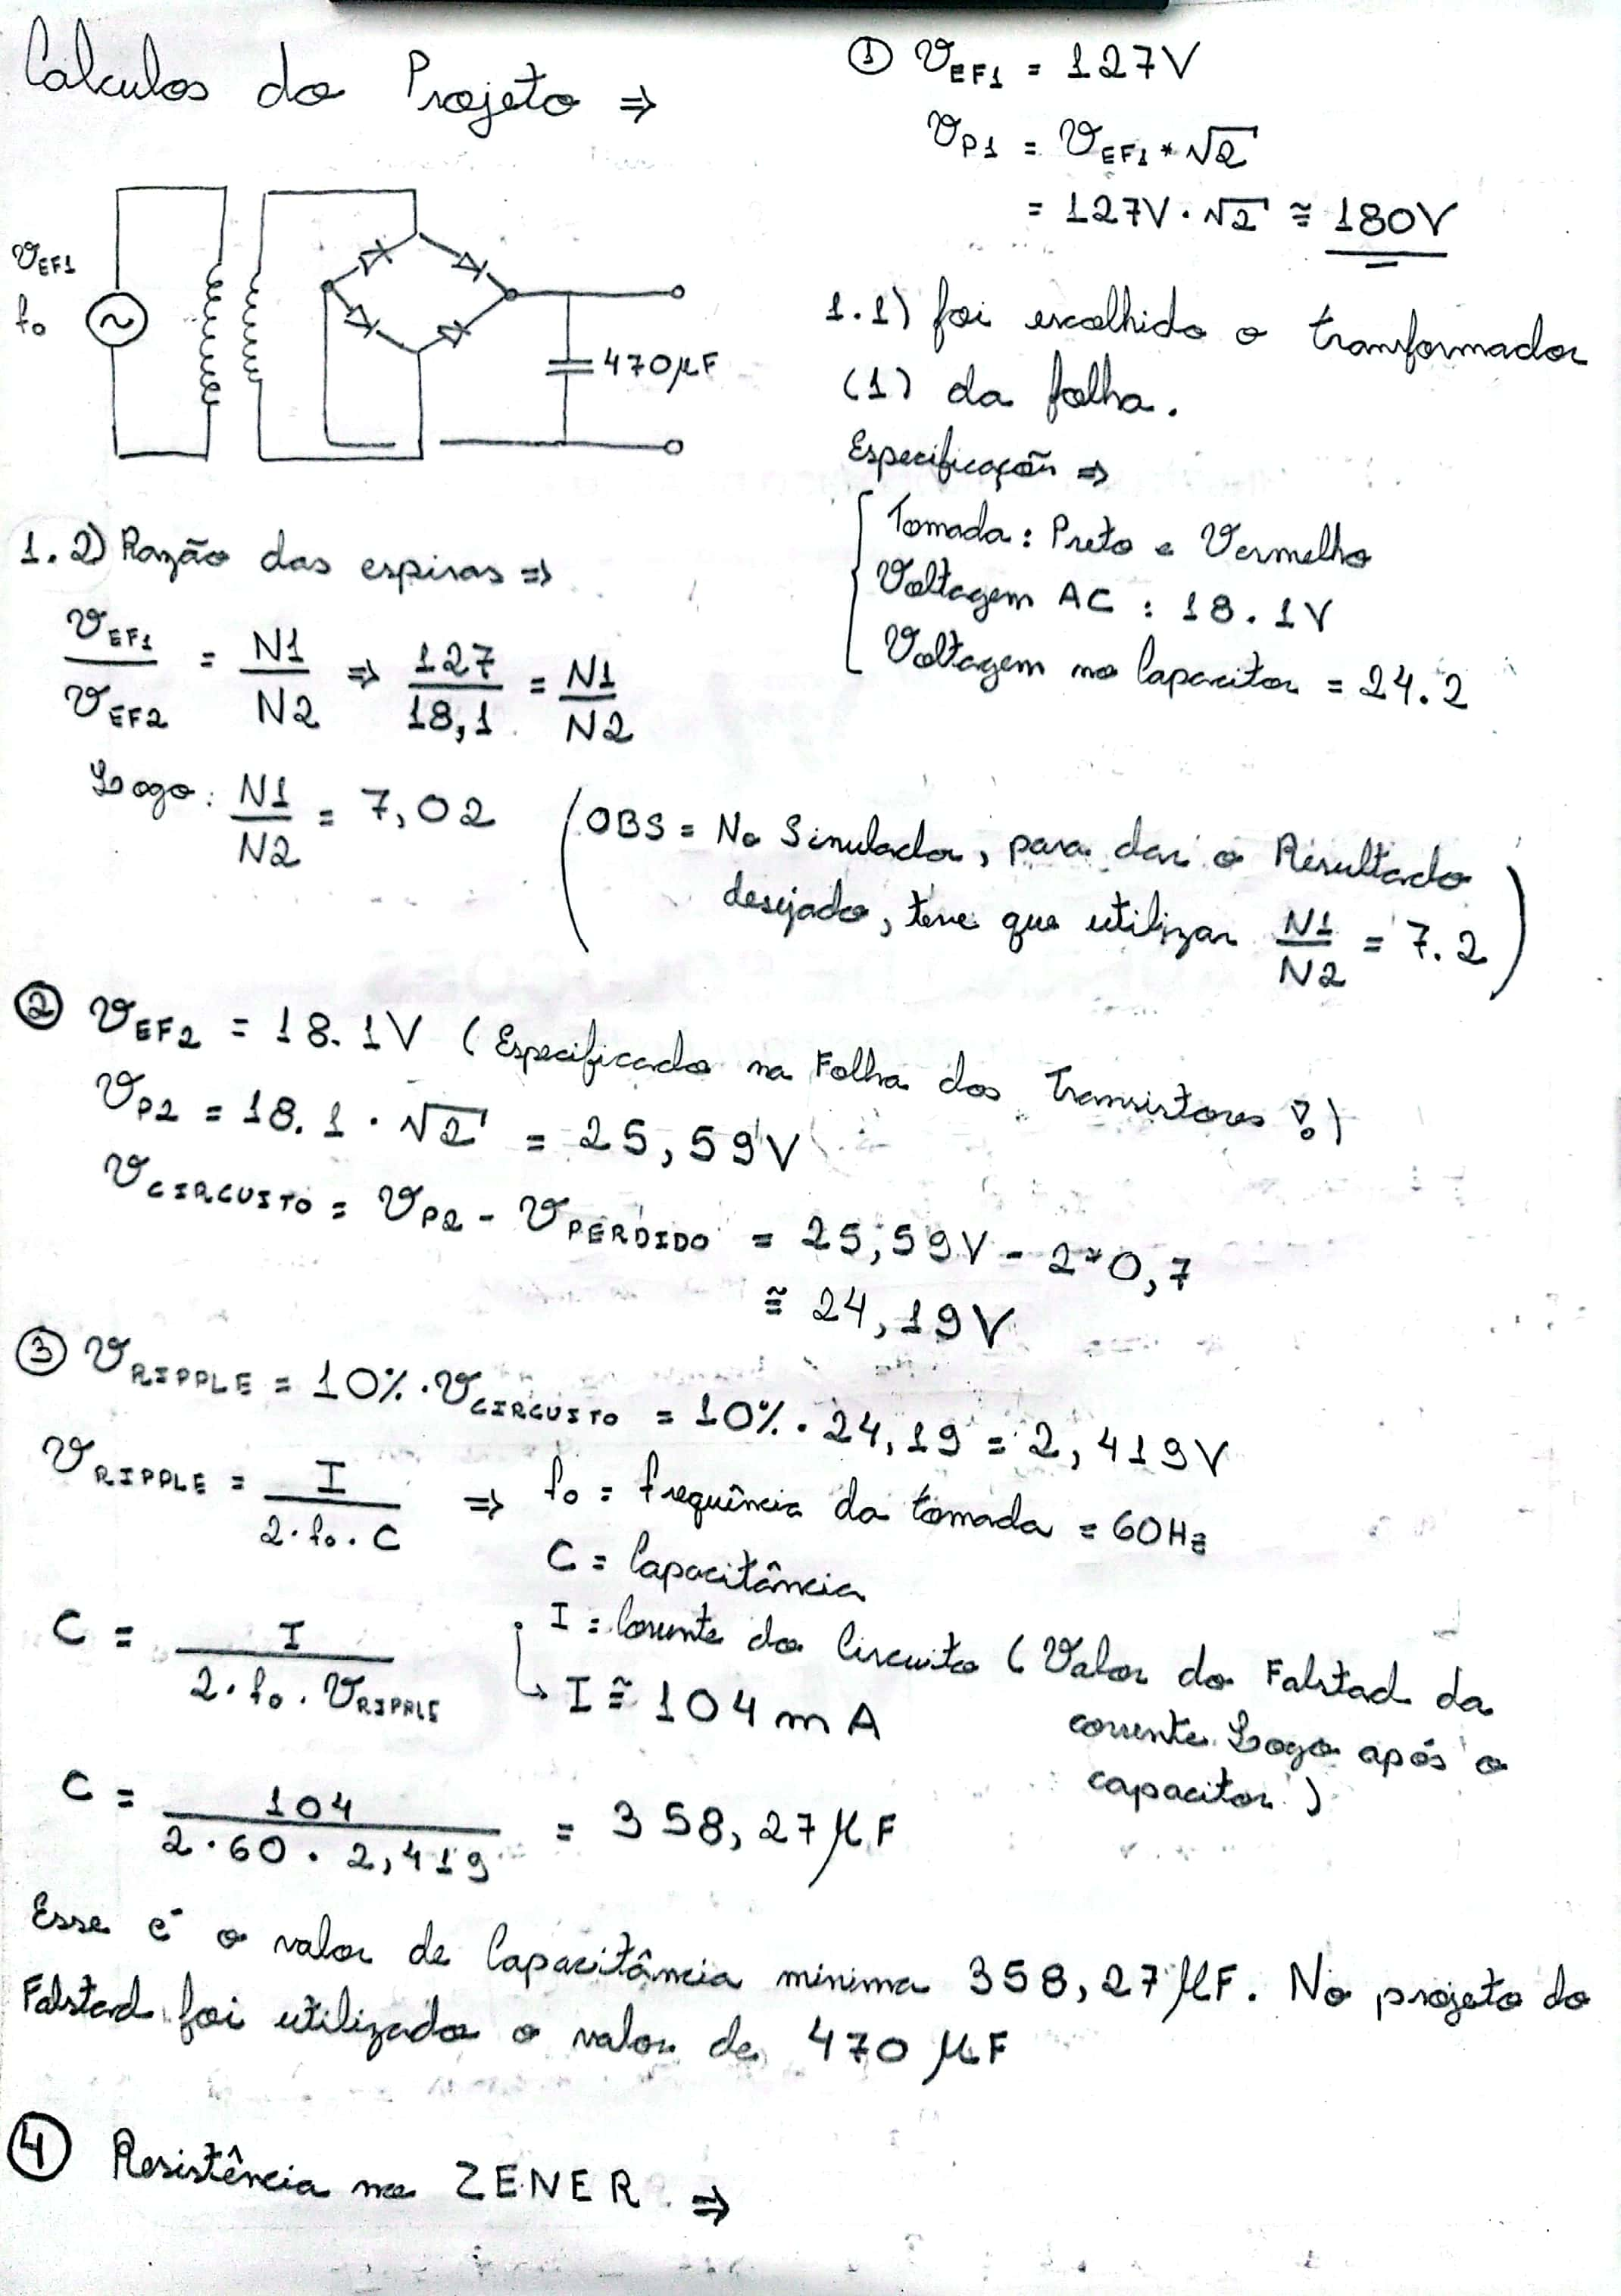 Calculos do Projeto ⇒
① V_EF1 = 127V
V_P1 = V_EF1 * √2
= 127V · √2 ≅ 180V
V_EF1
f₀
470μF
1.1) foi escolhido o transformador
(1) da folha.
Especificação ⇒
Tomada: Preto e Vermelho
Voltagem AC : 18.1V
Voltagem no Capacitor = 24.2
1.2) Razão das espiras ⇒
V_EF1 / V_EF2 = N1 / N2 ⇒ 127 / 18,1 = N1 / N2
Logo: N1 / N2 = 7,02
(OBS = No Simulador, para dar o Resultado
desejado, teve que utilizar N1 / N2 = 7.2)
② V_EF2 = 18.1V (Especificado na Folha dos Transistores !)
V_P2 = 18.1 · √2 = 25,59V
V_CIRCUITO = V_P2 - V_PERDIDO = 25,59V - 2*0,7
≅ 24,19V
③ V_RIPPLE = 10% · V_CIRCUITO = 10% · 24,19 = 2,419V
V_RIPPLE = I / 2·f₀·C ⇒ f₀ = frequência da tomada = 60Hz
C = Capacitância
C = I / 2·f₀·V_RIPPLE
I = Corrente do Circuito (Valor do Falstad da
corrente Logo após o
capacitor)
↳ I ≅ 104mA
C = 104 / 2·60·2,419 = 358,27μF
Esse é o valor de Capacitância minima 358,27μF. No projeto do
Falstad foi utilizado o valor de 470μF
④ Resistência no ZENER ⇒